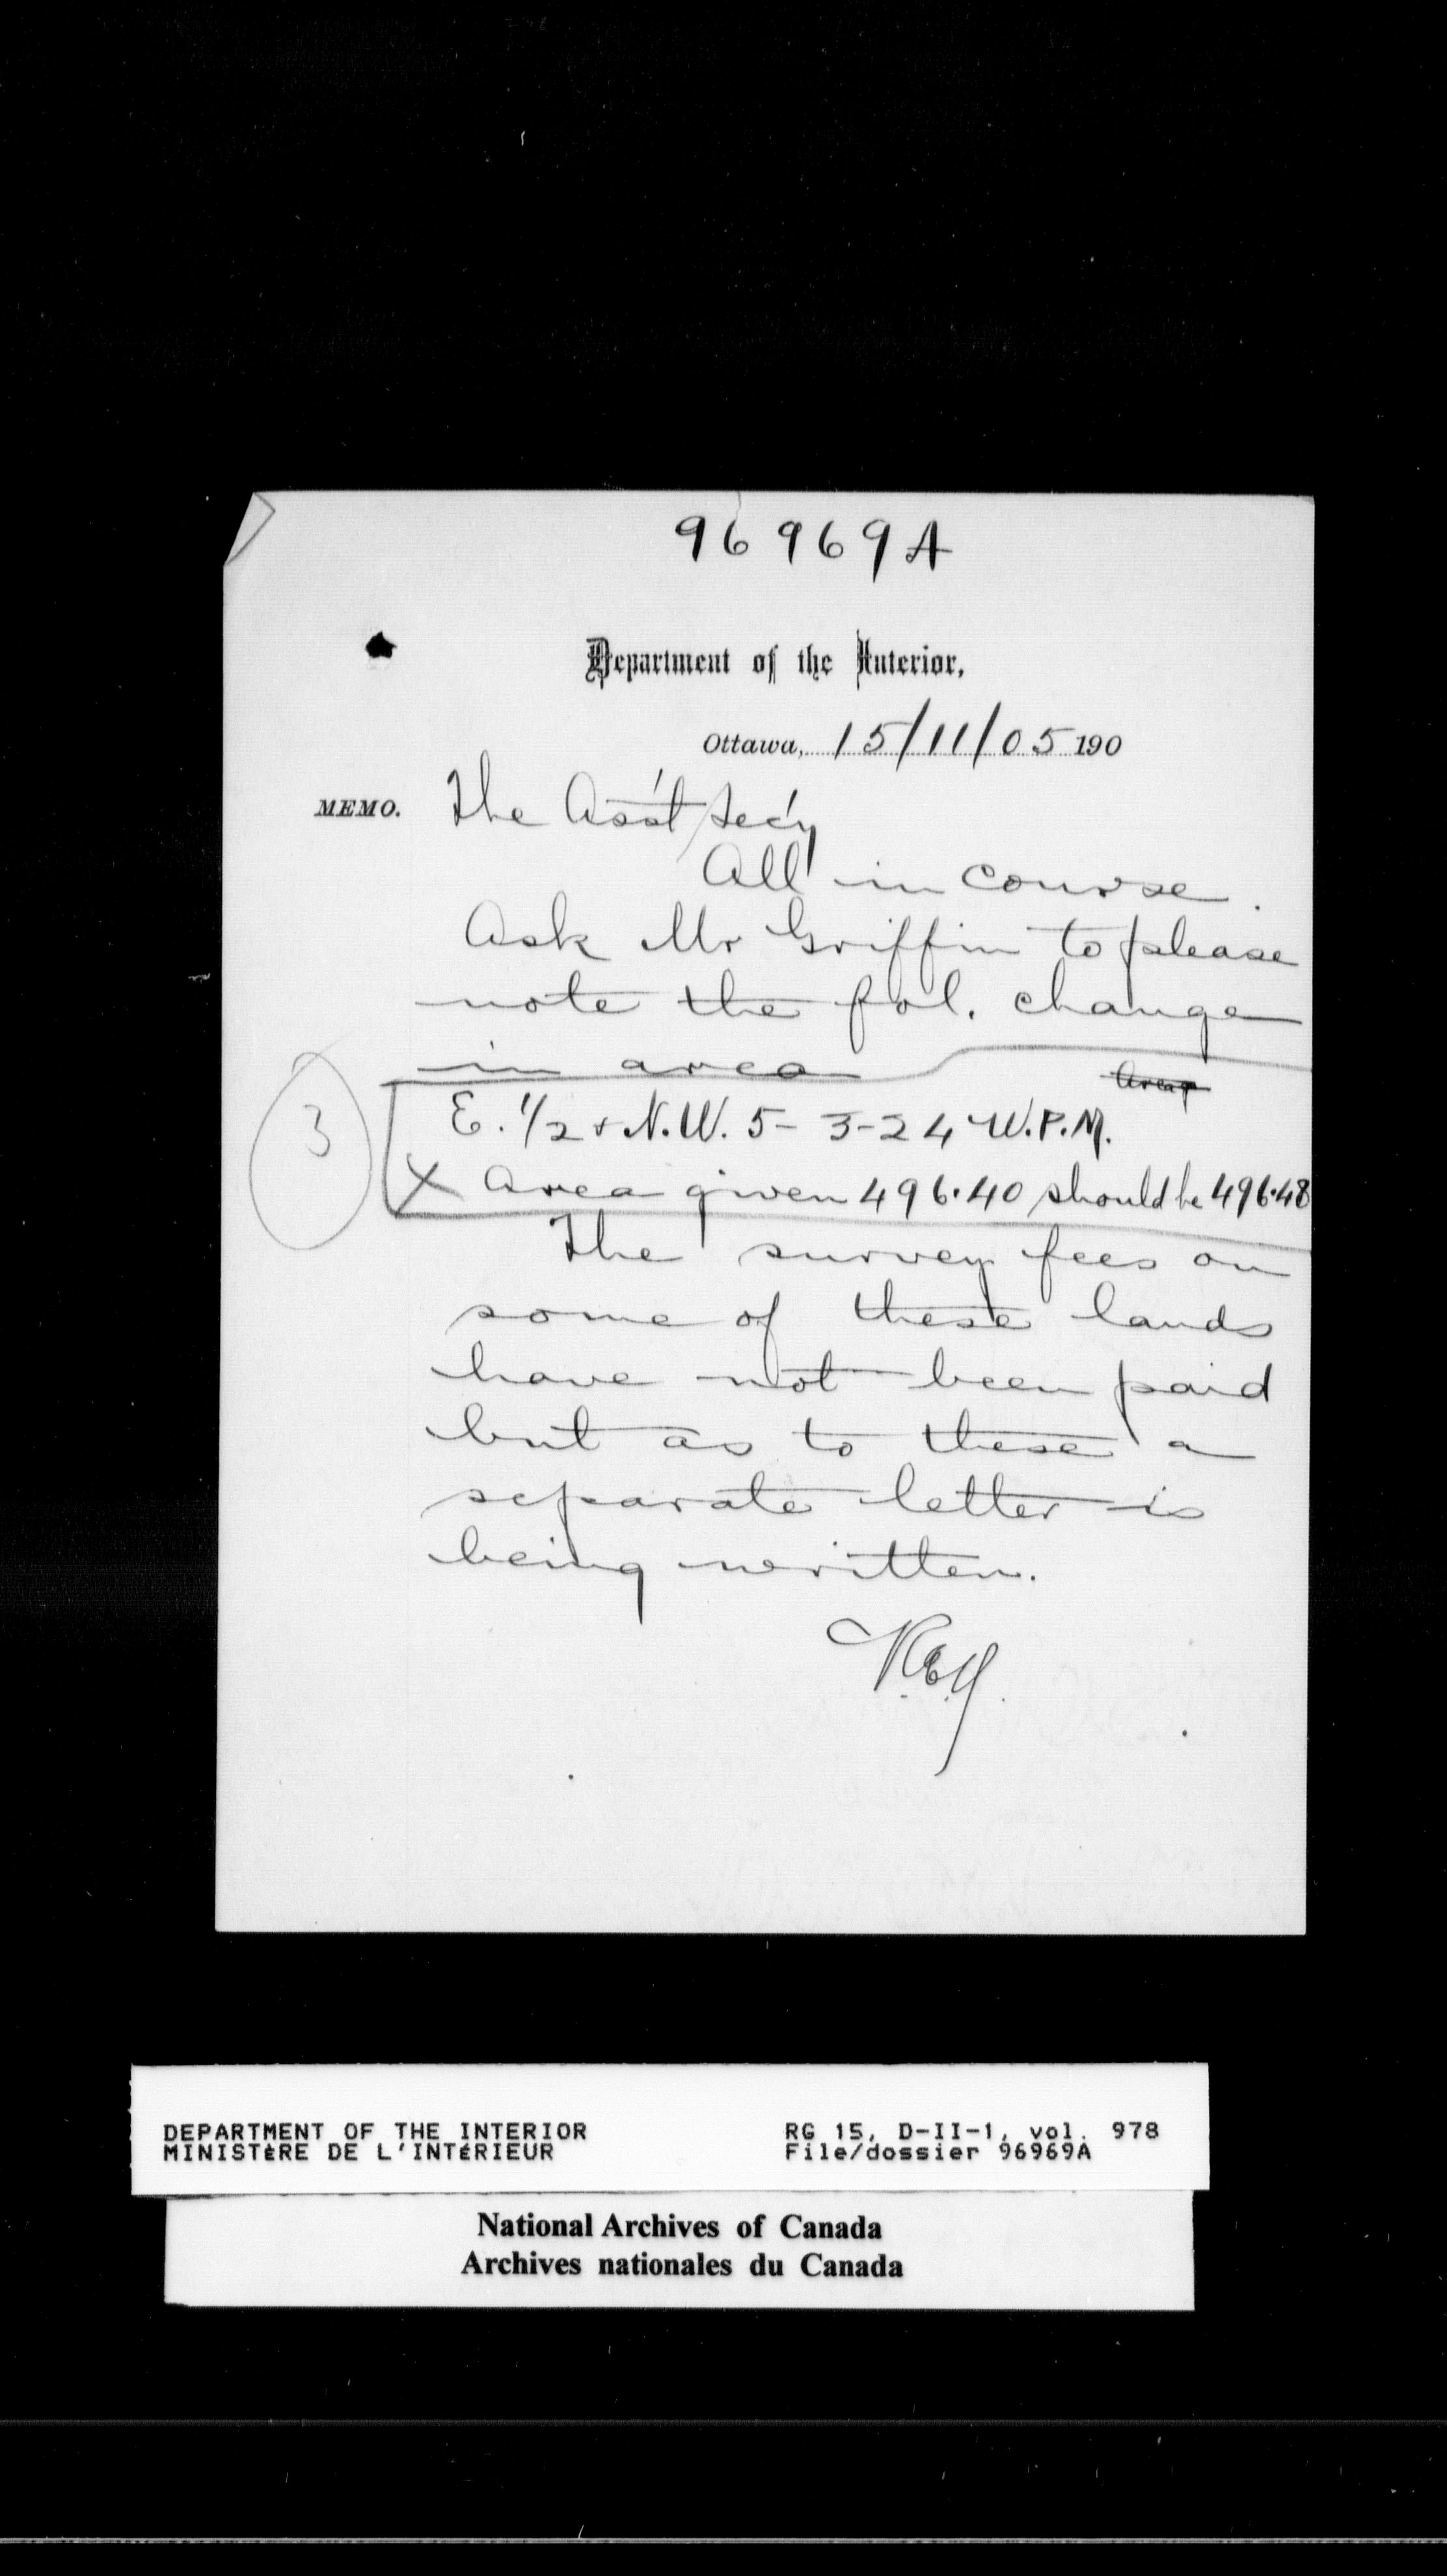 96969A
Department of the Interior,
Ottawa, 15/11/05 190
MEMO. The Ass't Sec'y
All in course.
Ask Mr Griffin to please
note the fol. change
in area
Area
3
E. 1/2 & N.W. 5-3-24 W.P.M.
X Area given 496.40 should be 496.48
The survey fees on
some of these lands
have not been paid
but as to these a
separate letter is
being written.
DEPARTMENT OF THE INTERIOR RG 15, D-II-1, vol. 978
MINISTÈRE DE L'INTÉRIEUR File/dossier 96969A
National Archives of Canada
Archives nationales du Canada